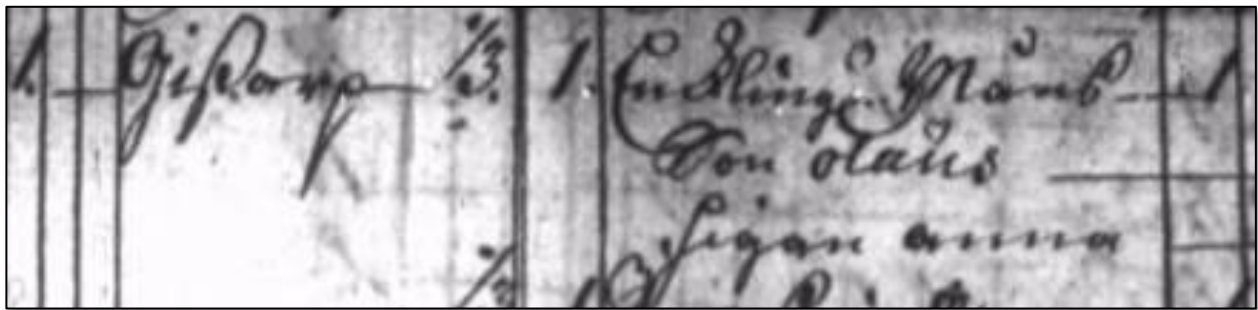 1. Gißarp 1/3. 1. Enckling Måns 1
Son olaus
Pigan anna